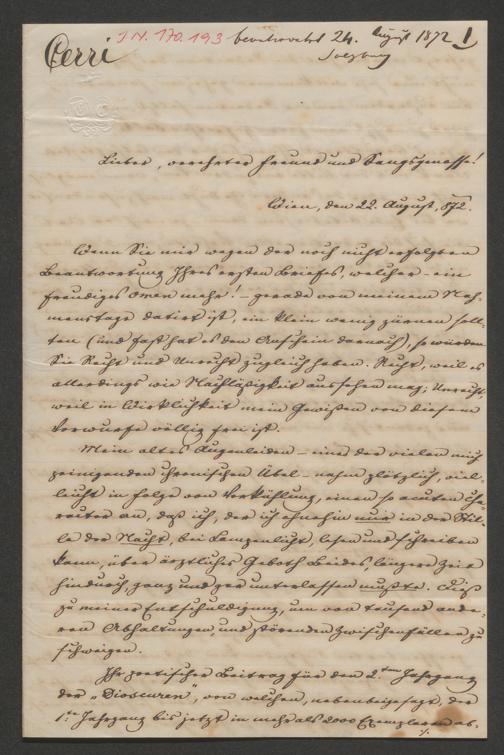 Cerri
I N. 170.193 beantwortet 24. August 1872 1
Salzburg
Lieber, verehrter Freund und Sangsgenosse!
Wien, den 22. August, 872.
Wenn Sie mir wegen der noch nicht erfolgten
Beantwortung Ihres ersten Briefes, welcher – ein
freudiges Omen mehr! – gerade von meinem Nah-
menstage datirt ist, ein klein wenig zürnen soll-
ten (und fast hat es den Anschein darnach), so würden
Sie Recht und Unrecht zugleich haben. Recht, weil es
allerdings wie Nachläßigkeit aussehen mag; Unrecht,
weil in Wirklichkeit mein Gewißen von diesem
Vorwurfe völlig frei ist.
Mein altes Augenleiden – eines der vielen mich
peinigenden chronischen Übel – nahm plötzlich, viel-
leicht in Folge von Verkühlung, einen so acuten Cha-
racter an, daß ich, der ich ohnehin nur in der Stil-
le der Nacht, bei Lampenlicht, lesen und schreiben
kann, über ärztliches Geboth Beides längere Zeit
hindurch, ganz und gar unterlassen mußte. Dieß
zu meiner Entschuldigung, um von tausend ande-
ren Abhaltungen und störenden Zwischenfällen zu
schweigen.
Ihr poetischer Beitrag für den 2.ten Jahrgang
der „Dioscuren“, von welchen, nebenbei gesagt, der
1.te Jahrgang bis jetzt in mehr als 2000 Exemplaren ab-